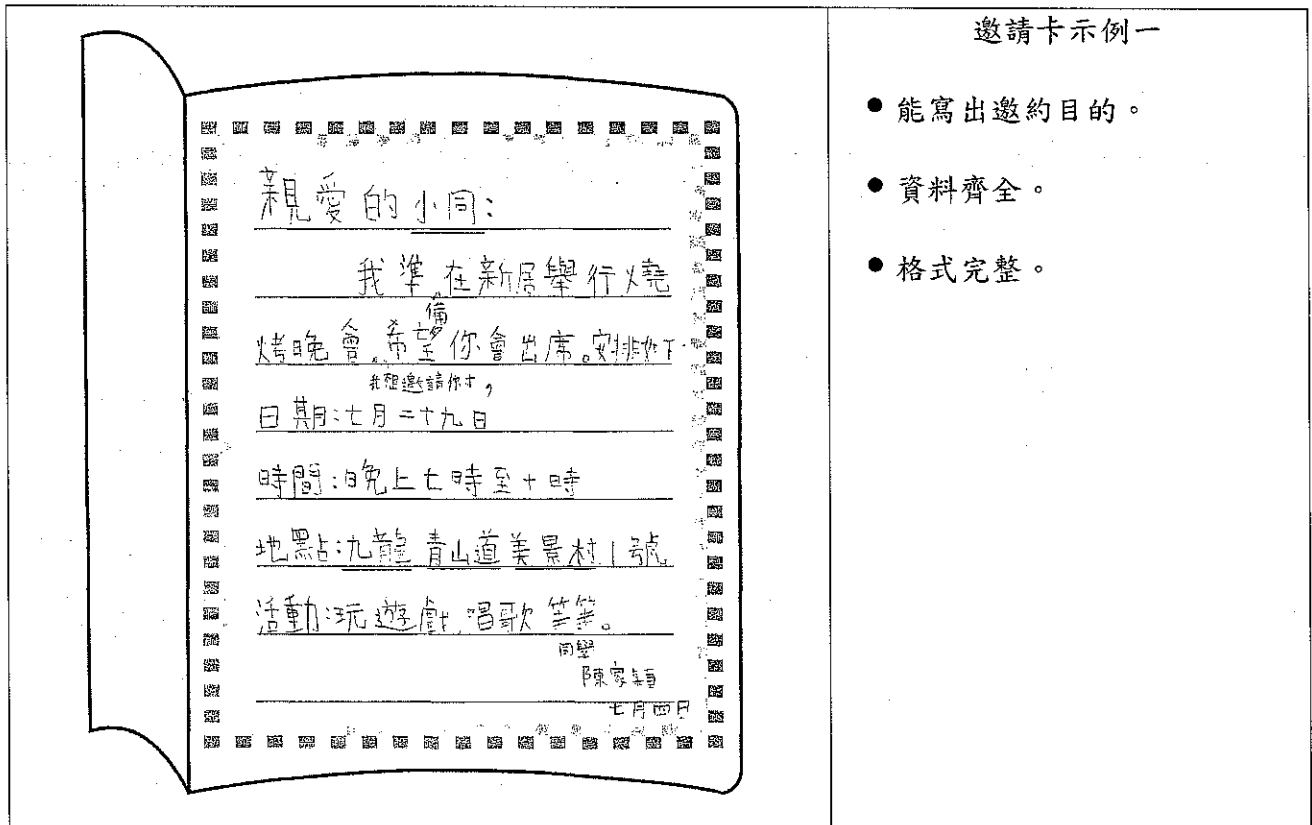 親愛的小同:
我準備在新居舉行燒
烤晚會。希望你會出席。安排如下
我想邀請你才,
日期:七月二十九日
時間:晚上七時至十時
地點:九龍青山道美景村1號
活動:玩遊戲,唱歌等等。
同學
陳家穎
七月四日
邀請卡示例一
● 能寫出邀約目的。
● 資料齊全。
● 格式完整。